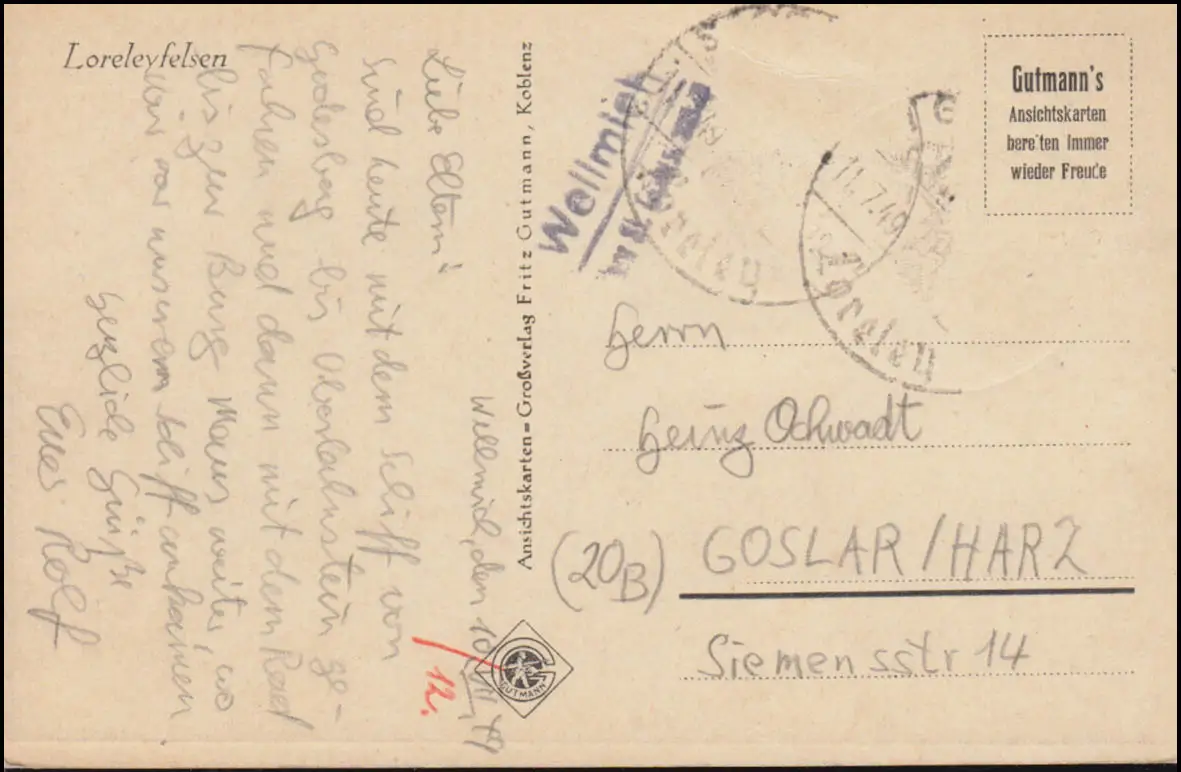 Loreleyfelsen
Wellmich, den 10. VII. 49
12.
Liebe Eltern!
Sind heute mit dem Schiff von
Godesberg bis Oberlahnstein ge-
fahren und dann mit dem Rad
bis zur Burg Maus weiter, wo
wir vor unserem Schiff ankamen
Herzliche Grüße
Euer Rolf
Ansichtskarten=Großverlag Fritz Gutmann, Koblenz
GUTMANN
Wellmich
Loreley
11.7.49
Loreley
Gutmann's
Ansichtskarten
bereiten immer
wieder Freude
Herrn
Heinz Ochwadt
(20B) GOSLAR/HARZ
Siemensstr 14